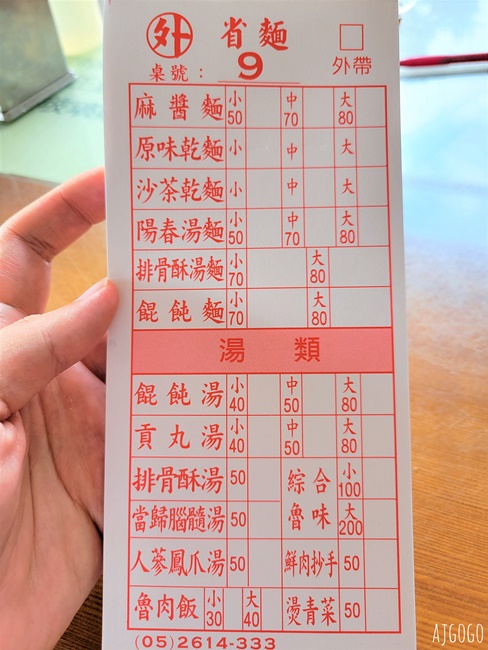 外 省麵
桌號：9 外帶
麻醬麵 小50 中70 大80
原味乾麵 小 中 大
沙茶乾麵 小 中 大
陽春湯麵 小50 中70 大80
排骨酥湯麵 小70 大80
餛飩麵 小70 大80
湯類
餛飩湯 小40 中50 大80
貢丸湯 小40 中50 大80
排骨酥湯 50 綜合 小100
當歸腦髓湯 50 魯味 大200
人蔘鳳爪湯 50 鮮肉抄手 50
魯肉飯 小30 大40 燙青菜 50
(05)2614-333
AJGOGO